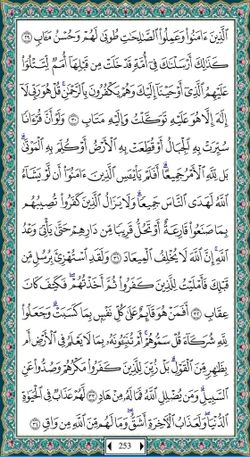 الَّذِينَ ءَامَنُوا وَعَمِلُوا الصَّالِحَاتِ طُوبَىٰ لَهُمْ وَحُسْنُ مَـَٔابٍ ٢٩
كَذَٰلِكَ أَرْسَلْنَاكَ فِي أُمَّةٍ قَدْ خَلَتْ مِن قَبْلِهَا أُمَمٌ لِّتَتْلُوَا
عَلَيْهِمُ الَّذِي أَوْحَيْنَا إِلَيْكَ وَهُمْ يَكْفُرُونَ بِالرَّحْمَٰنِ قُلْ هُوَ رَبِّي لَا
إِلَٰهَ إِلَّا هُوَ عَلَيْهِ تَوَكَّلْتُ وَإِلَيْهِ مَتَابِ ٣٠ وَلَوْ أَنَّ قُرْءَانًا
سُيِّرَتْ بِهِ الْجِبَالُ أَوْ قُطِّعَتْ بِهِ الْأَرْضُ أَوْ كُلِّمَ بِهِ الْمَوْتَىٰ
بَل لِّلَّهِ الْأَمْرُ جَمِيعًا أَفَلَمْ يَا۟يْـَٔسِ الَّذِينَ ءَامَنُوا أَن لَّوْ يَشَاءُ
اللَّهُ لَهَدَى النَّاسَ جَمِيعًا وَلَا يَزَالُ الَّذِينَ كَفَرُوا تُصِيبُهُم
بِمَا صَنَعُوا قَارِعَةٌ أَوْ تَحُلُّ قَرِيبًا مِّن دَارِهِمْ حَتَّىٰ يَأْتِيَ وَعْدُ
اللَّهِ إِنَّ اللَّهَ لَا يُخْلِفُ الْمِيعَادَ ٣١ وَلَقَدِ اسْتُهْزِئَ بِرُسُلٍ مِّن
قَبْلِكَ فَأَمْلَيْتُ لِلَّذِينَ كَفَرُوا ثُمَّ أَخَذْتُهُمْ فَكَيْفَ كَانَ
عِقَابِ ٣٢ أَفَمَنْ هُوَ قَائِمٌ عَلَىٰ كُلِّ نَفْسٍ بِمَا كَسَبَتْ وَجَعَلُوا
لِلَّهِ شُرَكَاءَ قُلْ سَمُّوهُمْ أَمْ تُنَبِّـُٔونَهُ بِمَا لَا يَعْلَمُ فِي الْأَرْضِ أَم
بِظَاهِرٍ مِّنَ الْقَوْلِ بَلْ زُيِّنَ لِلَّذِينَ كَفَرُوا مَكْرُهُمْ وَصُدُّوا عَنِ
السَّبِيلِ وَمَن يُضْلِلِ اللَّهُ فَمَا لَهُ مِنْ هَادٍ ٣٣ لَّهُمْ عَذَابٌ فِي الْحَيَوٰةِ
الدُّنْيَا وَلَعَذَابُ الْـَٔاخِرَةِ أَشَقُّ وَمَا لَهُم مِّنَ اللَّهِ مِن وَاقٍ ٣٤
253